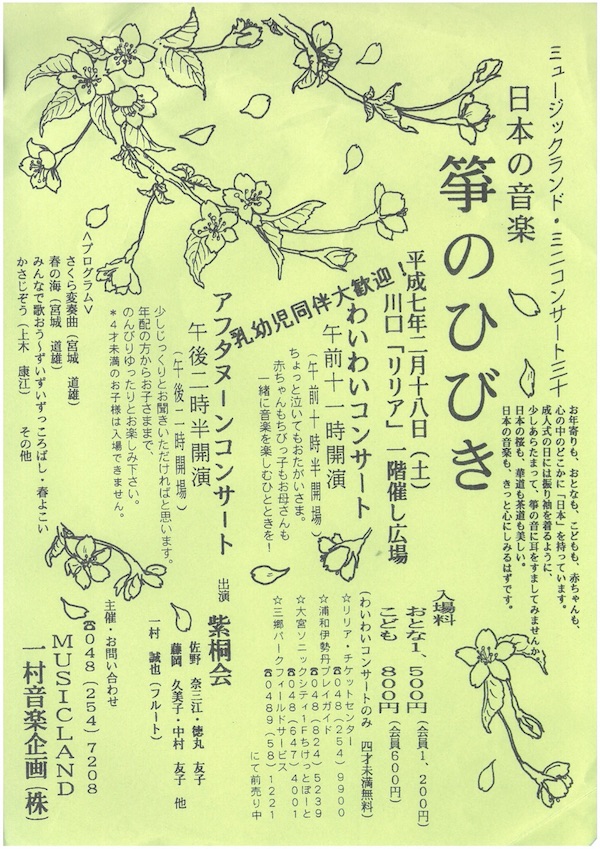 ミュージックランド・ミニコンサート三十
日本の音楽
箏のひびき
お年寄りも、おとなも、こどもも、赤ちゃんも、
心の中のどこかに「日本」を持っています。
成人式の日には振り袖を着るように、
少しあらたまって、箏の音に耳をすましてみませんか。
日本の桜も、華道も茶道も美しい。
日本の音楽も、きっと心にしみるはずです。
平成七年二月十八日(土)
川口「リリア」一階催し広場
乳幼児同伴大歓迎!
わいわいコンサート
午前十一時開演
(午前十時半開場)
ちょっと泣いてもおたがいさま。
赤ちゃんもちびっ子もお母さんも
一緒に音楽を楽しむひとときを!
アフタヌーンコンサート
午後二時半開演
(午後二時開場)
少しじっくりとお聞きいただければと思います。
年配の方からお子さままで、
のんびりゆったりとお楽しみ下さい。
*4才未満のお子様は入場できません。
<プログラム>
さくら変奏曲(宮城 道雄)
春の海(宮城 道雄)
みんなで歌おう~ずいずいずっころばし・春よこい
かさじぞう(上木 康江) その他
入場料
おとな1、500円(会員1、200円)
こども 800円(会員600円)
(わいわいコンサートのみ 四才未満無料)
☆リリア・チケットセンター
☎048(254)9900
☆浦和伊勢丹プレイガイド
☎048(824)5239
☆大宮ソニックシティ1Fちけっとぽーと
☎048(647)4001
☆三郷パークフィールドサービス
☎0489(58)1221
にて前売り中
出演 紫桐会
佐野 奈三江・徳丸 友子
藤岡 久美子・中村 友子 他
一村 誠也(フルート)
主催・お問い合わせ
☎048(254)7208
MUSICLAND
一村音楽企画(株)